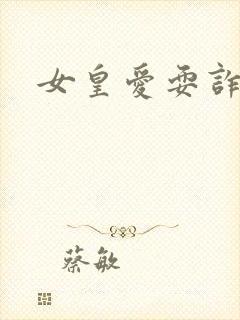 女皇愛耍詐
蔡敏